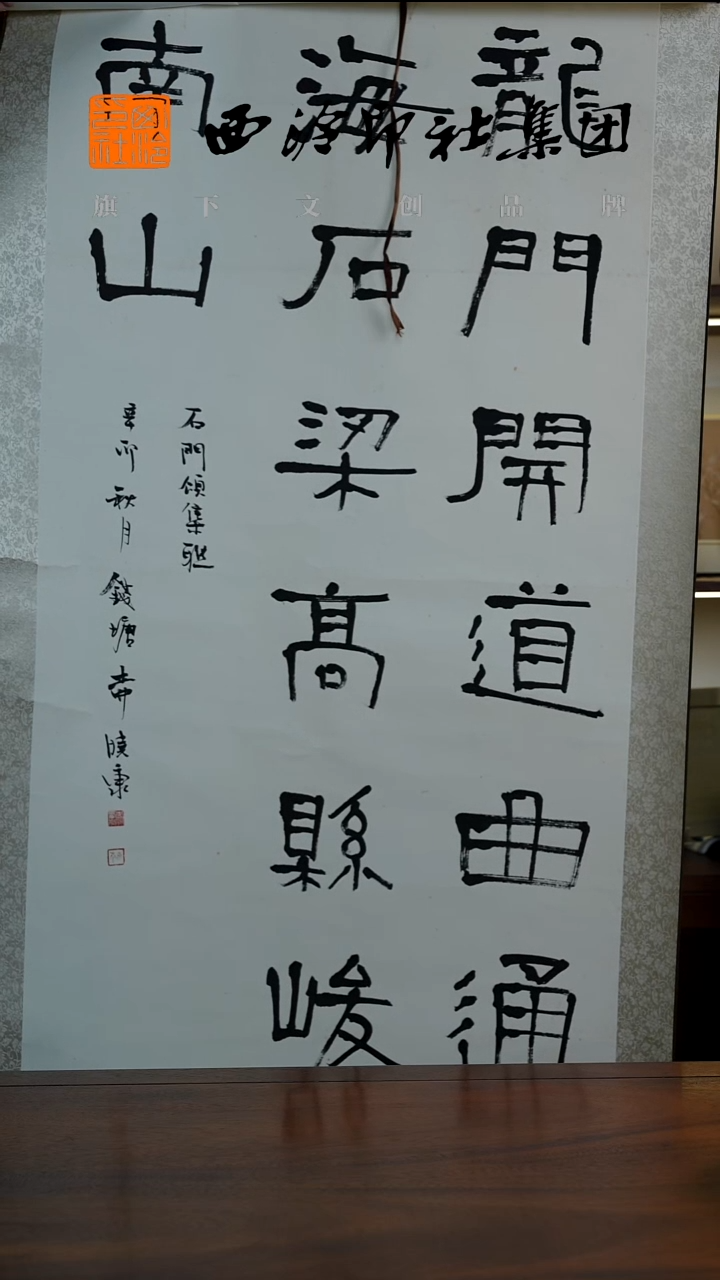 西泠印社集团
旗下文创品牌
龍門開道曲通
海石梁高縣峻
南山
石門頌集聯
辛卯秋月錢塘